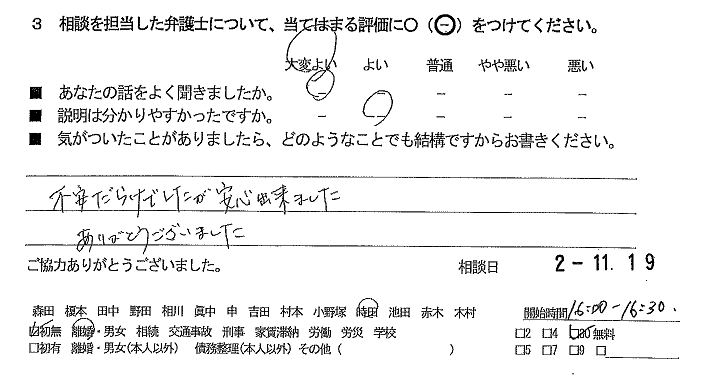 3 相談を担当した弁護士について、当てはまる評価に○（⊖）をつけてください。
大変よい よい 普通 やや悪い 悪い
■ あなたの話をよく聞きましたか。 － － － － －
■ 説明は分かりやすかったですか。 － － － － －
■ 気がついたことがありましたら、どのようなことでも結構ですからお書きください。
不安だらけでしたが安心出来ました
ありがとうございました
ご協力ありがとうございました。 相談日 2-11.19
森田 榎本 田中 野田 相川 眞中 申 吉田 村本 小野塚 時田 池田 赤木 木村 開始時間 16:00-16:30.
☑初無 離婚・男女 相続 交通事故 刑事 家賃滞納 労働 労災 学校 □2 □4 ☑30無料
□初有 離婚・男女(本人以外) 債務整理(本人以外) その他 ( ) □5 □7 □9 □